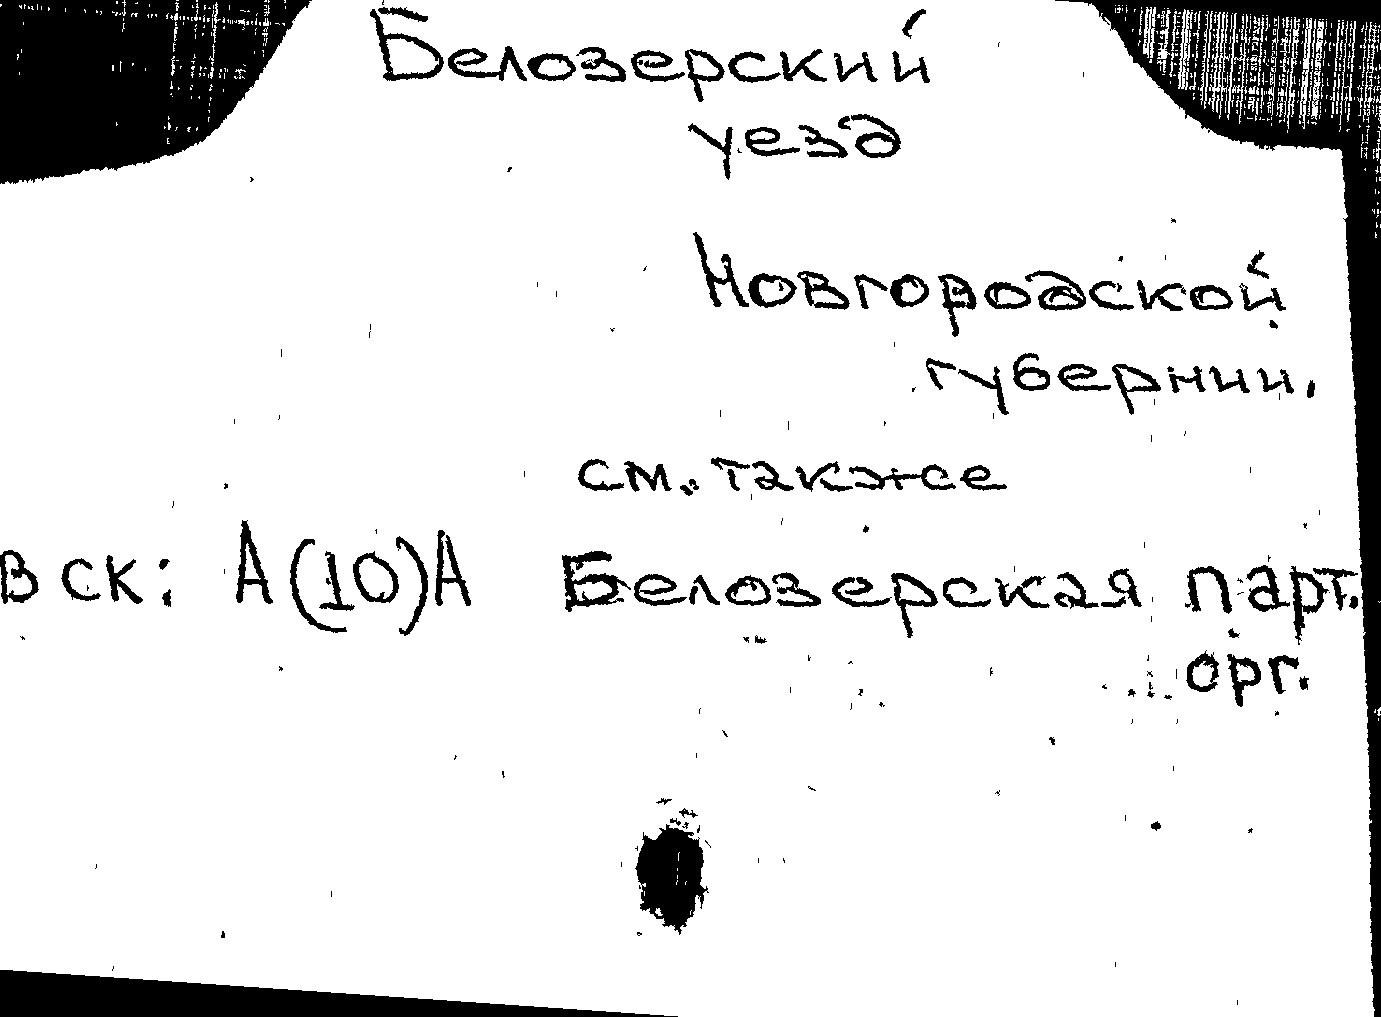 Белозерский
уезд
Новгородской
губернии.
см. также
в ск: А(10)А Белозерская парт.
орг.